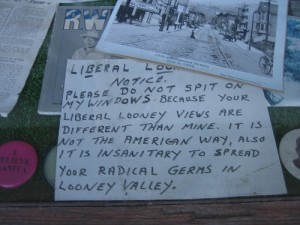 LIBERAL
NOTICE.
PLEASE DO NOT SPIT ON
MY WINDOWS. BECAUSE YOUR
LIBERAL LOONEY VIEWS ARE
DIFFERENT THAN MINE. IT IS
NOT THE AMERICAN WAY, ALSO
IT IS INSANITARY TO SPREAD
YOUR RADICAL GERMS IN
LOONEY VALLEY.